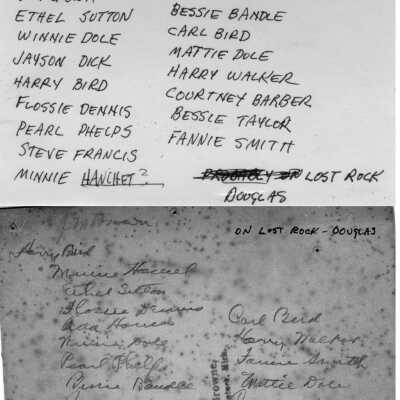 ETHEL SUTTON
WINNIE DOLE
JAYSON DICK
HARRY BIRD
FLOSSIE DENNIS
PEARL PHELPS
STEVE FRANCIS
MINNIE HANCHET?
BESSIE BANDLE
CARL BIRD
MATTIE DOLE
HARRY WALKER
COURTNEY BARBER
BESSIE TAYLOR
FANNIE SMITH
PROBABLY ON LOST ROCK
DOUGLAS
ON LOST ROCK - DOUGLAS
Brown
Harry Bird
Minnie
Ethel Sutton
Flossie Dennis
Winnie Dole
Pearl Phelps
Bessie Bandle
Carl Bird
Harry Walker
Fannie Smith
Mattie Dole